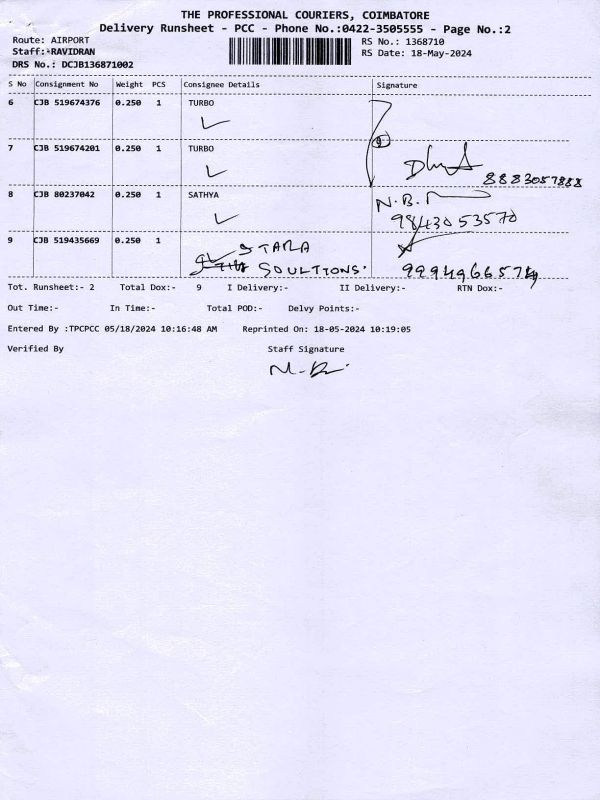 THE PROFESSIONAL COURIERS, COIMBATORE
Delivery Runsheet - PCC - Phone No.:0422-3505555 - Page No.:2
Route: AIRPORT
RS No.: 1368710
Staff:-RAVIDRAN
RS Date: 18-May-2024
DRS No.: DCJB136871002
S No Consignment No Weight PCS Consignee Details Signature
6 CJB 519674376 0.250 1 TURBO
7 CJB 519674201 0.250 1 TURBO
8883057888
8 CJB 80237042 0.250 1 SATHYA
N.B.
9843053570
9 CJB 519435669 0.250 1 STARA
SOULTIONS.
Tot. Runsheet:- 2 Total Dox:- 9 I Delivery:- II Delivery:- RTN Dox:-
Out Time:- In Time:- Total POD:- Delvy Points:-
Entered By :TPCPCC 05/18/2024 10:16:48 AM Reprinted On: 18-05-2024 10:19:05
Verified By Staff Signature